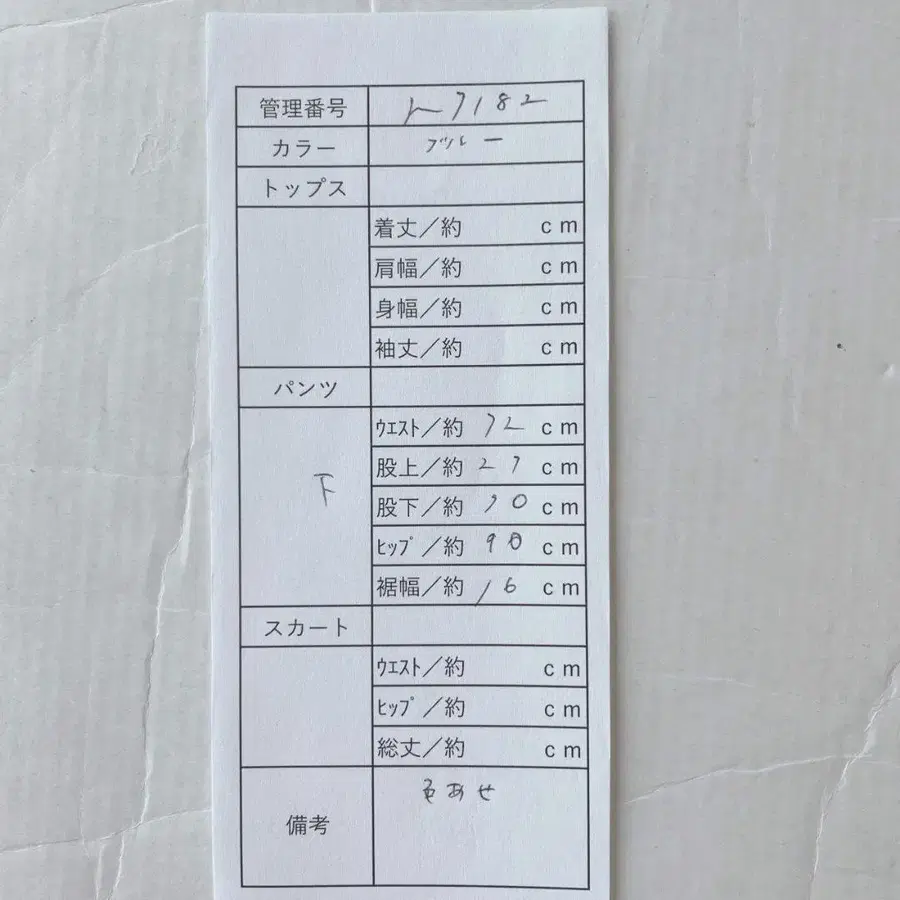 管理番号 h7182
カラー ブルー
トップス
着丈／約 cm
肩幅／約 cm
身幅／約 cm
袖丈／約 cm
パンツ
ｳｴｽﾄ／約 72 cm
股上／約 27 cm
下
股下／約 70 cm
ﾋｯﾌﾟ／約 90 cm
裾幅／約 16 cm
スカート
ｳｴｽﾄ／約 cm
ﾋｯﾌﾟ／約 cm
総丈／約 cm
備考 色あせ